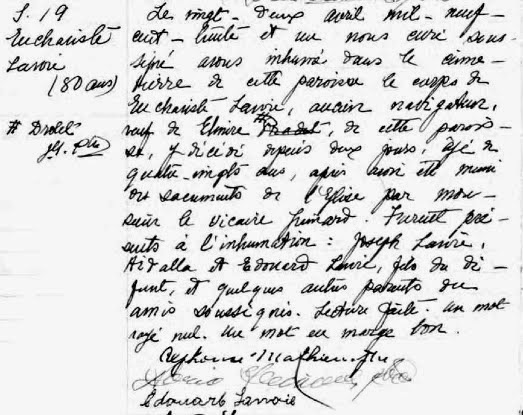 S. 19
Eucharisté
Lavoie
(80 ans)
# Drolet
Le vingt-deux avril mil-neuf-
cent-trente et un nous curé sous-
signé avons inhumé dans le cime-
tierre de cette paroisse le corps de
Eucharisté Lavoie, ancien navigateur,
veuf de Elmire #, de cette parois-
se, y décédé depuis deux jours, âgé de
quatre-vingts ans, après avoir été muni
des sacrements de l'Eglise par mon-
sieur le vicaire Simard. Furent pré-
sents à l'inhumation : Joseph Lavoie,
et Edouard Lavoie, fils du dé-
funt, et quelques autres parents ou
amis soussignés. Lecture faite. Un mot
rayé nul. Un mot en marge bon.
Alphonse Mathieu
Edouard Lavoie